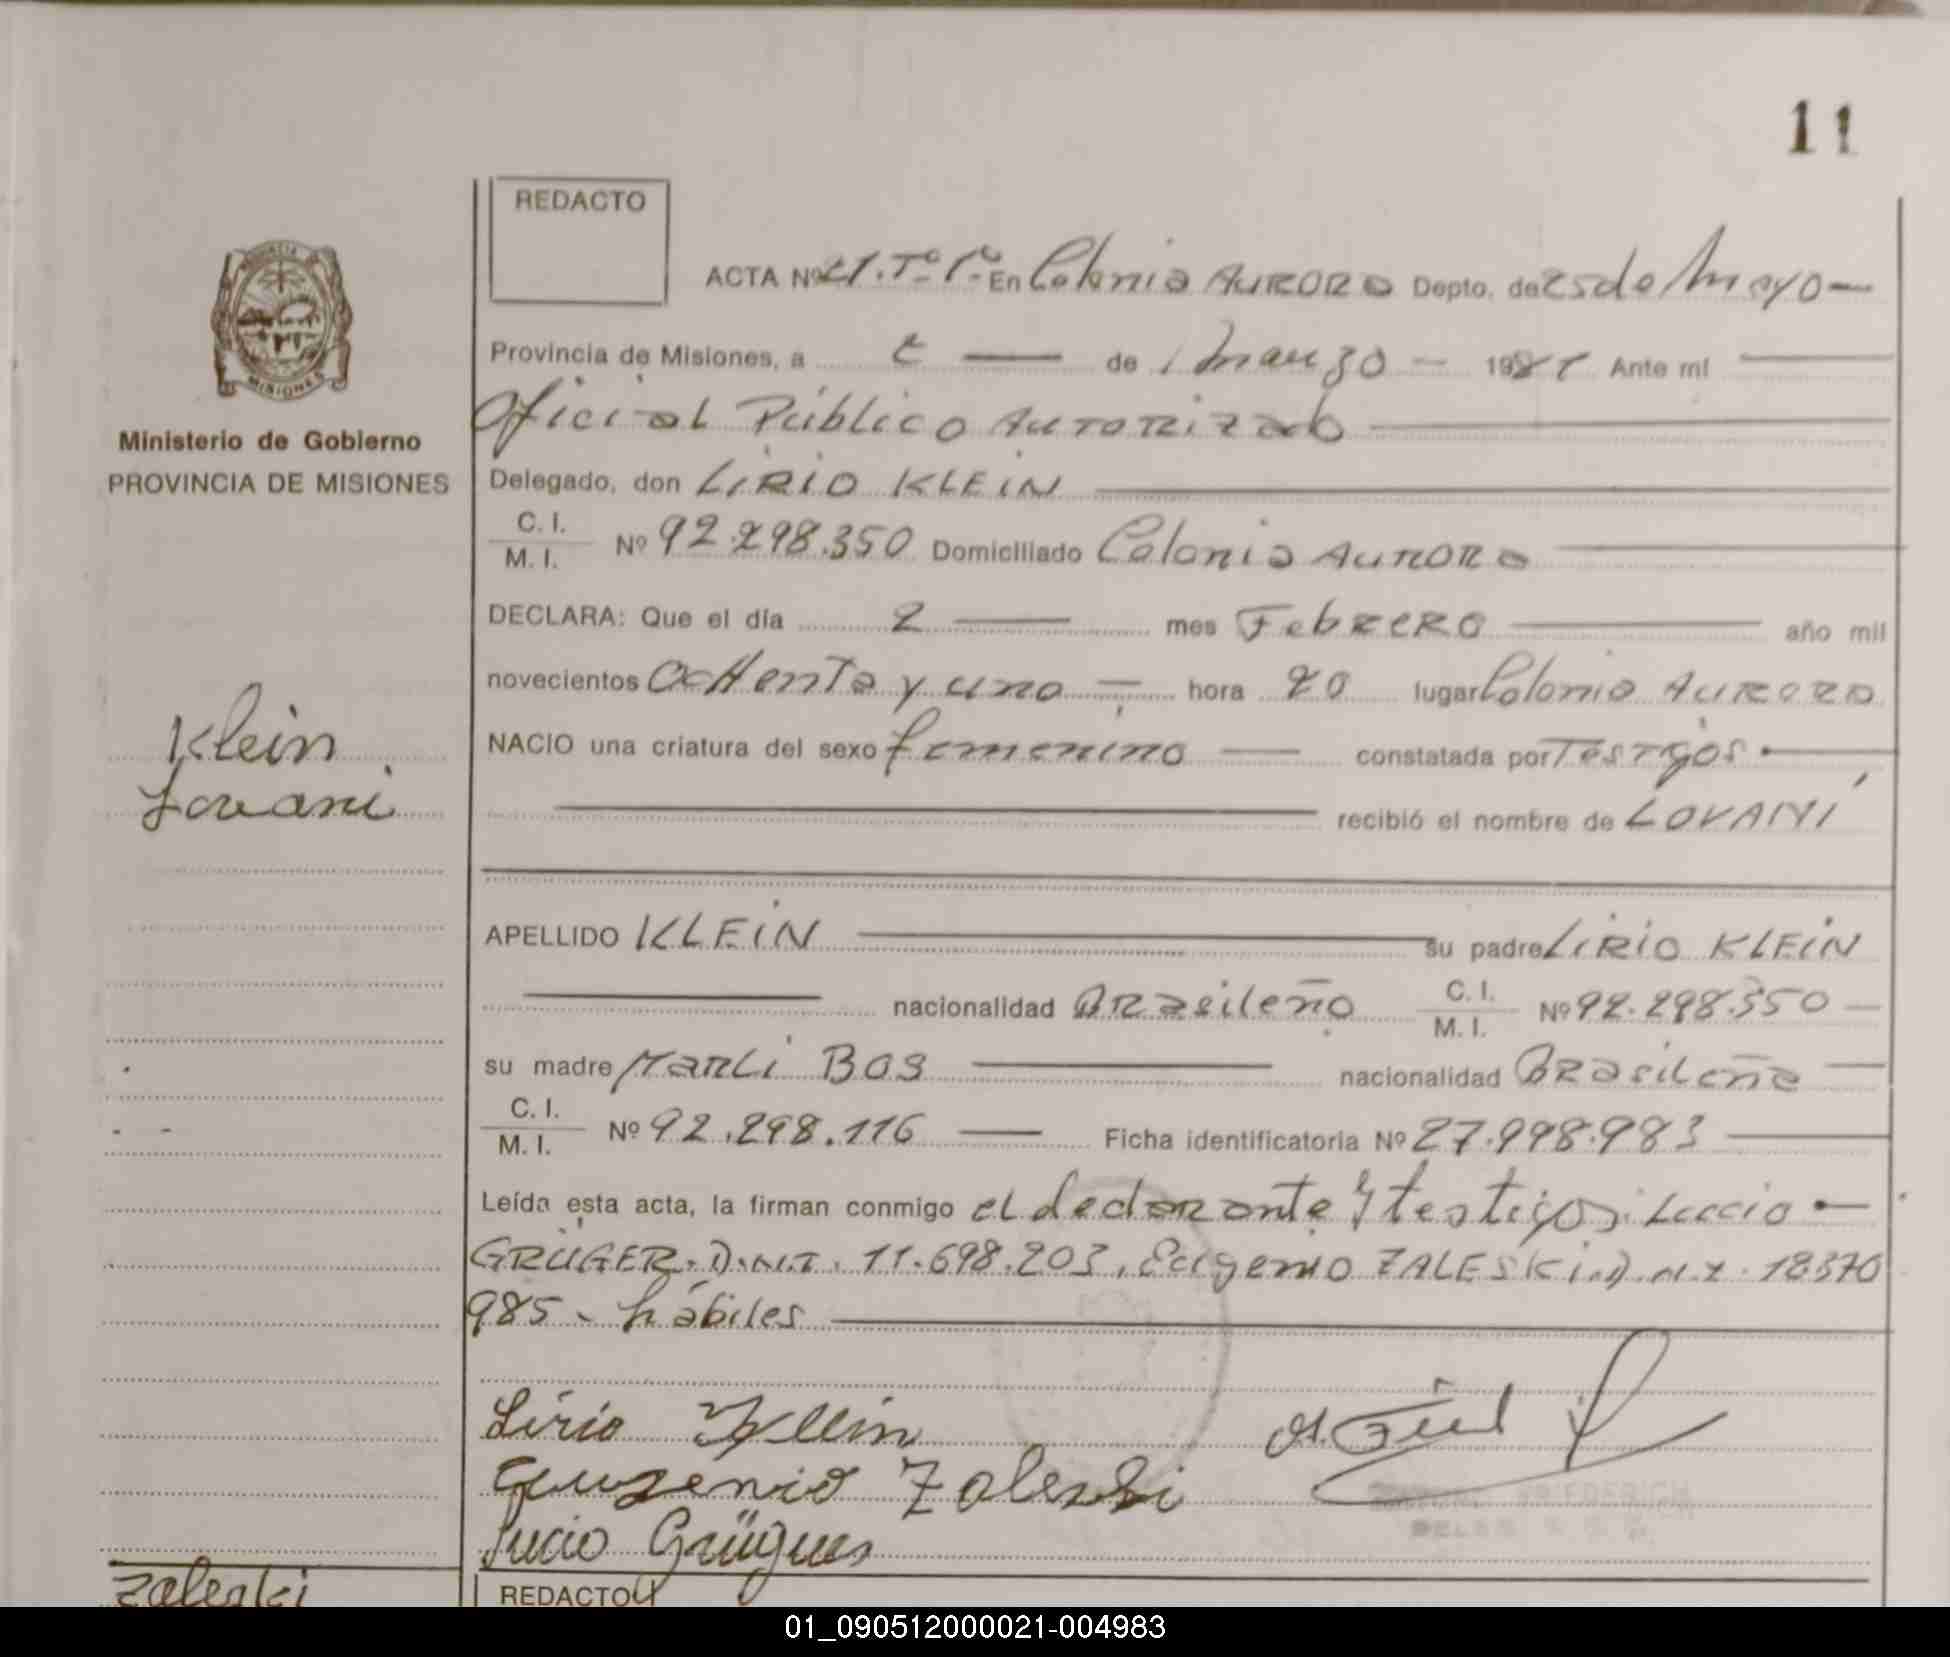 11
REDACTO
ACTA Nº 21. Tº 1º En Colonia Aurora Depto. de 25 de Mayo
Provincia de Misiones, a 2 de Marzo 1981 Ante mí
Oficial Público Autorizado
Ministerio de Gobierno
PROVINCIA DE MISIONES
Delegado, don LIRIO KLEIN
C. I.
M. I. Nº 92.298.350 Domiciliado Colonia Aurora
DECLARA: Que el día 2 mes Febrero año mil
novecientos Ochenta y uno hora 20 lugar Colonia Aurora
Klein
Lovani
NACIO una criatura del sexo femenino constatada por Testigos
recibió el nombre de LOVANI
APELLIDO KLEIN su padre LIRIO KLEIN
nacionalidad Brasileño C. I. M. I. Nº 92.298.350
su madre Marli Bos nacionalidad Brasileña
C. I.
M. I. Nº 92.298.116 Ficha identificatoria Nº 27.998.983
Leída esta acta, la firman conmigo el declarante y testigos: Lucio
GRÜGER. D.N.I. 11.698.203, Eugenio ZALESKI. D.N.I. 18370
985 - hábiles
Lirio Klein
Eugenio Zaleski
FRIEDERICH
Lucio Grüguer
Zaleski
REDACTO
01_090512000021-004983